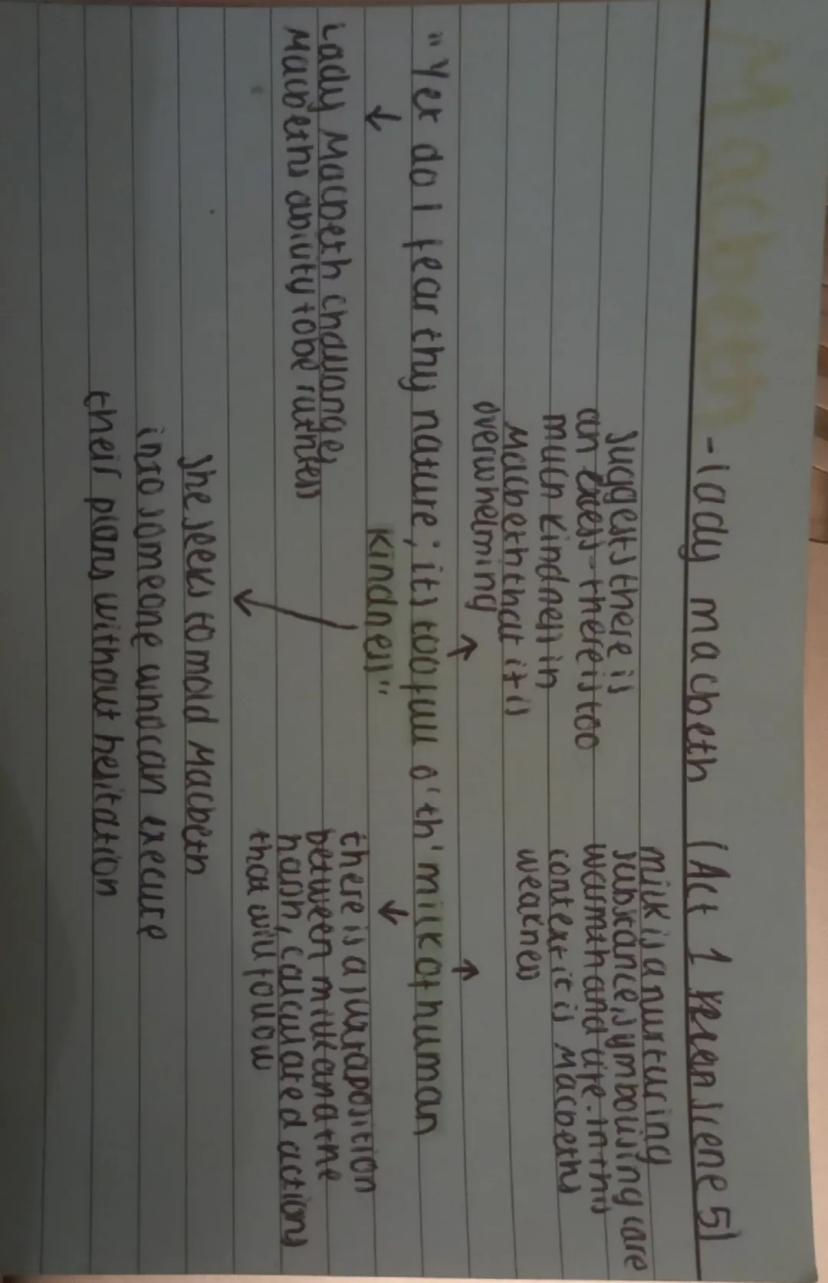 Macbeth - lady macbeth (Act 1 scene 5)
suggests there is
an excess - there is too
much kindness in
Macbeth that it is
overwhelming
milk is a nurturing
substance, symbolising care
warmth and life. In this
context it is Macbeths
weakness
"Yet do I fear thy nature; its too full o'th' milk of human
kindness"
Lady Macbeth challanges
Macbeths ability to be ruthless
she seeks to mold Macbeth
into someone who can execute
their plans without hesitation
there is a juxtaposition
between milk and the
harsh, calculated actions
that will follow